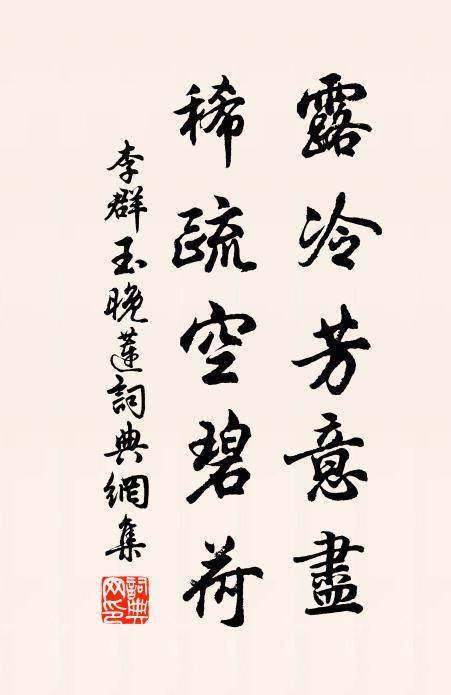 露冷芳意盡
稀疏空碧荷
李群玉晚蓮詞典網集
詞典网印